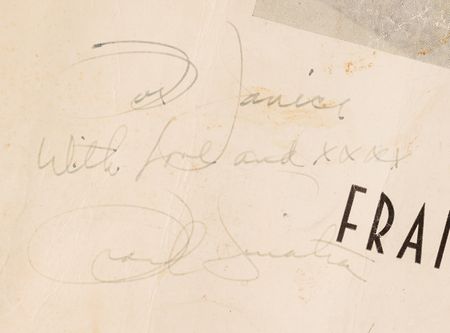 For Janice
With love and xxxx
Frank Sinatra
FRAN